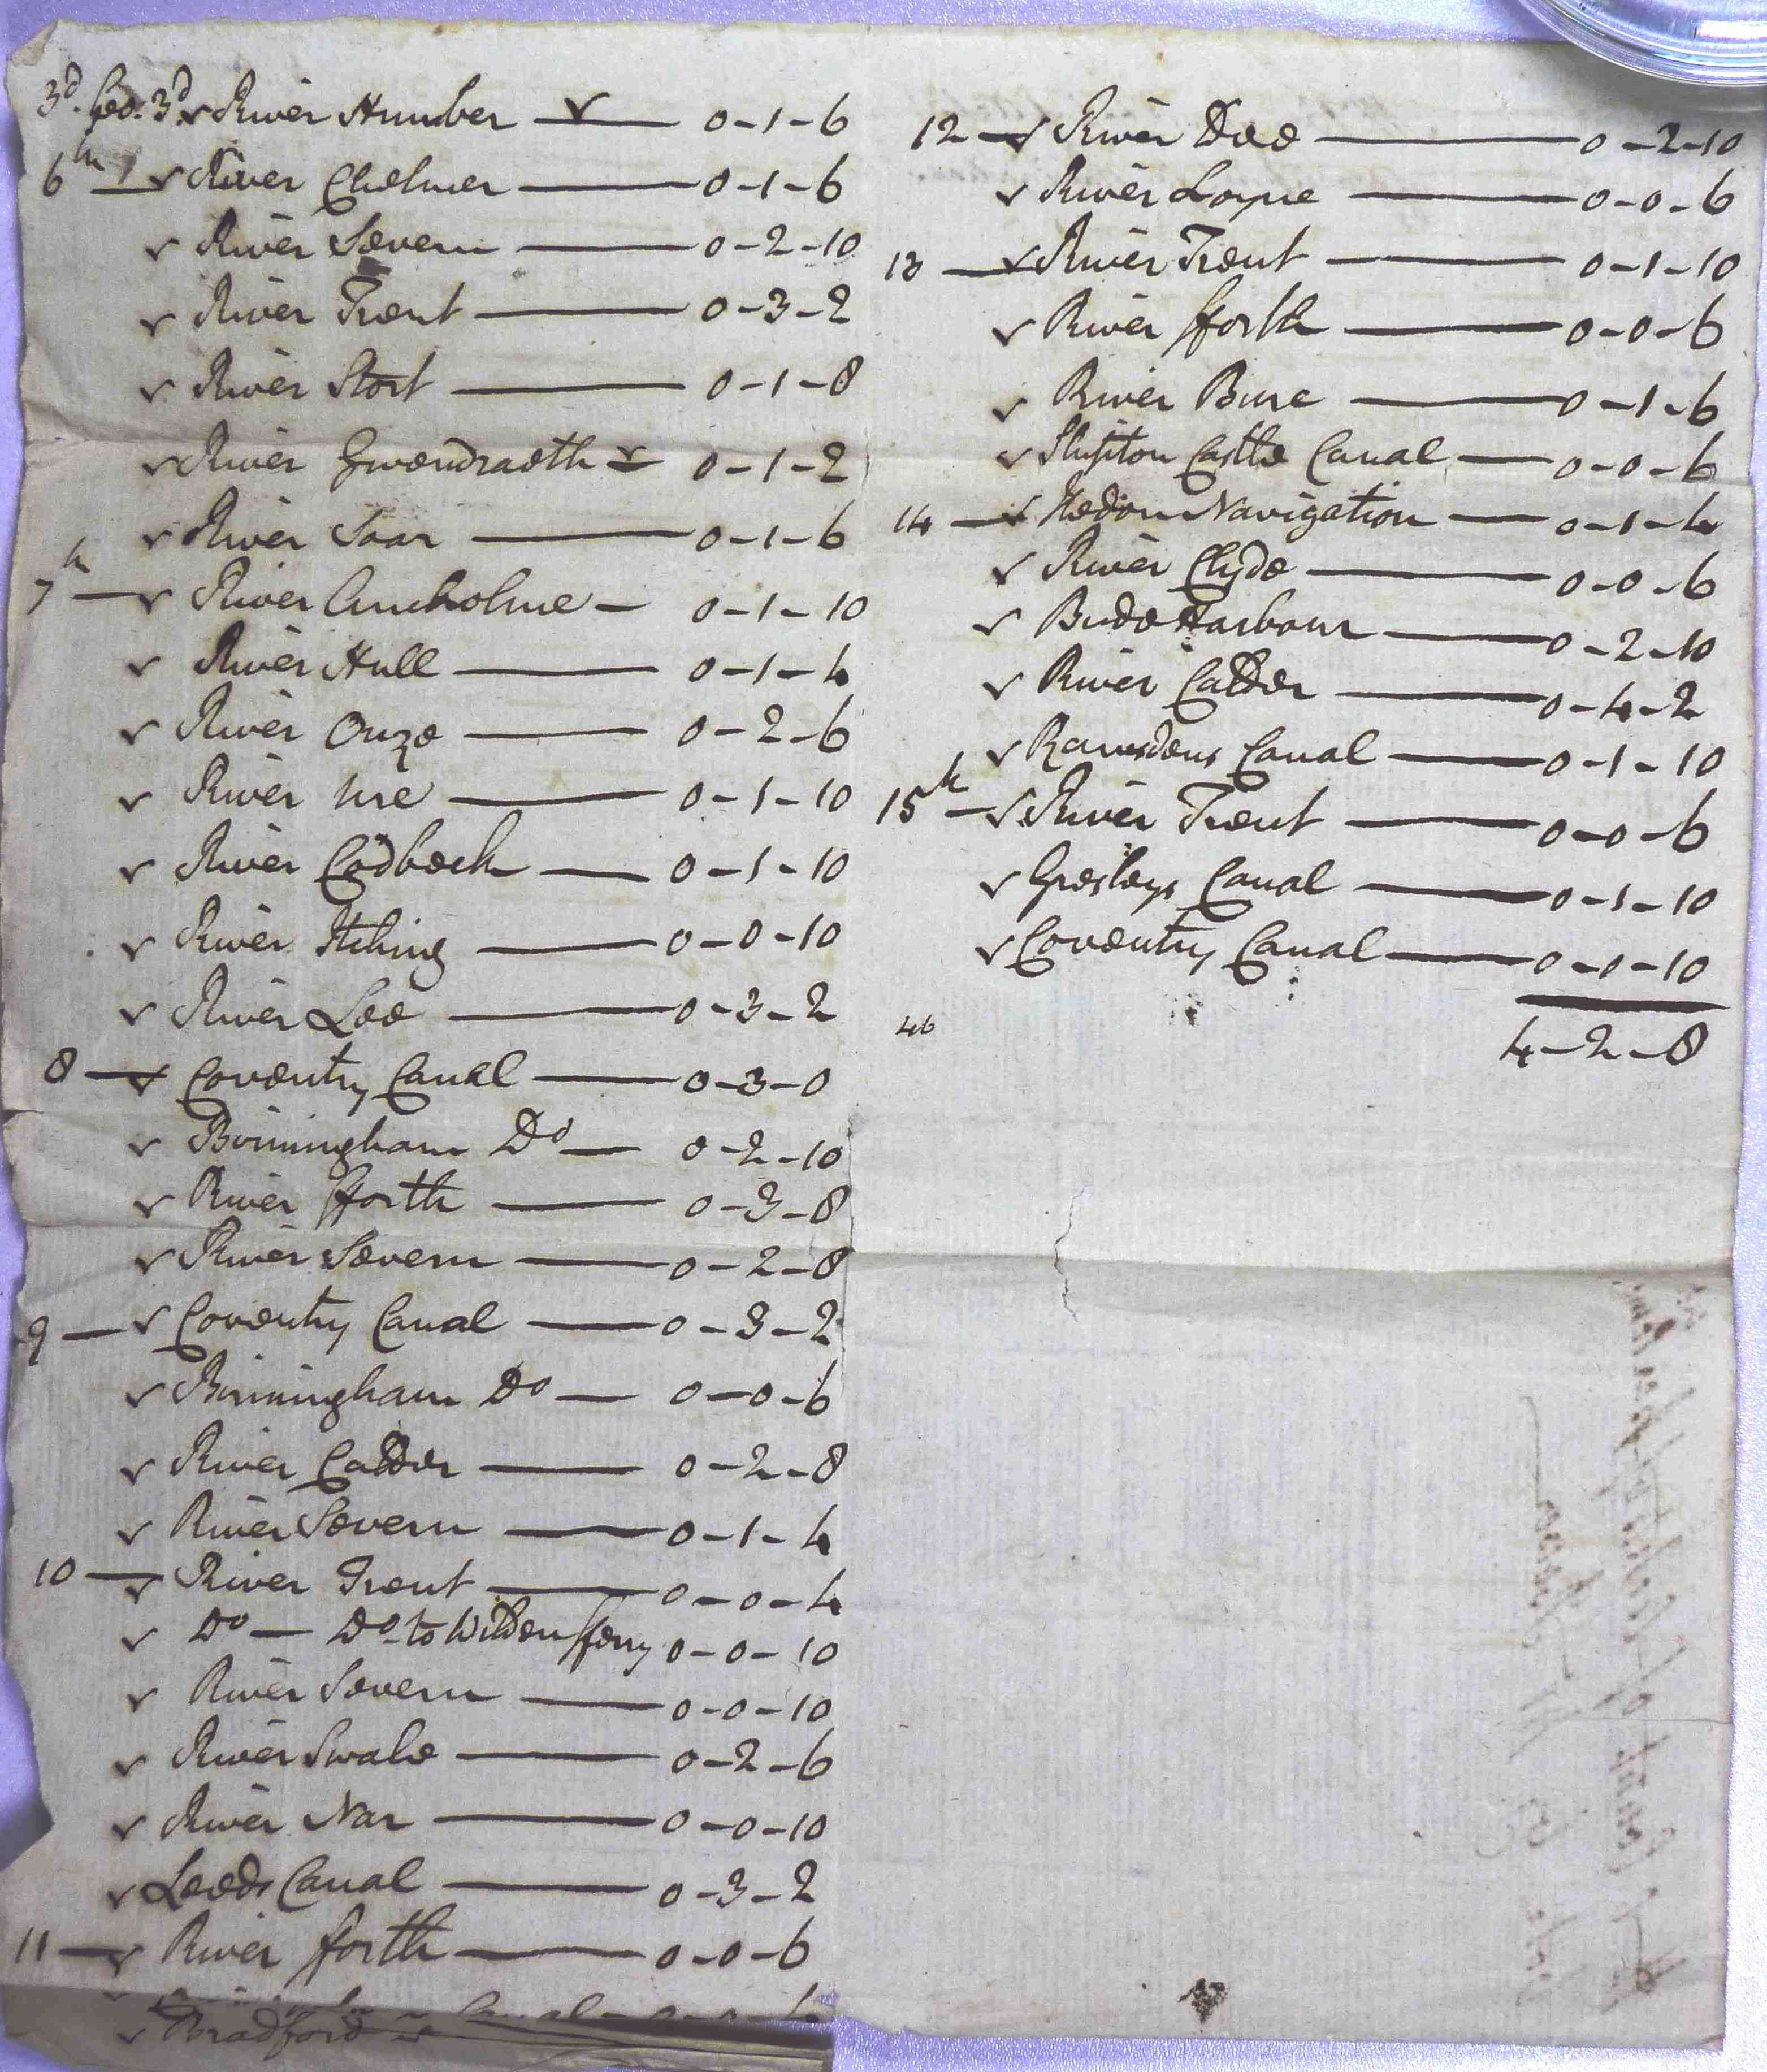 3d. Geo. 3d River Humber — 0-1-6
6th — River Chelmer — 0-1-6
River Severn — 0-2-10
River Trent — 0-3-2
River Stort — 0-1-8
River Gwendraeth — 0-1-2
River Soar — 0-1-6
7th — River Ancholme — 0-1-10
River Hull — 0-1-4
River Ouze — 0-2-6
River Ure — 0-1-10
River Codbeck — 0-1-10
River Itching — 0-0-10
River Lee — 0-3-2
8 — Coventry Canal — 0-3-0
Birmingham Do — 0-2-10
River fforth — 0-3-8
River Severn — 0-2-8
9 — Coventry Canal — 0-3-2
Birmingham Do — 0-0-6
River Calder — 0-2-8
River Severn — 0-1-4
10 — River Trent — 0-0-4
Do — Do to Wilden fferry 0-0-10
River Severn — 0-0-10
River Swale — 0-2-6
River Nar — 0-0-10
Leeds Canal — 0-3-2
11 — River fforth — 0-0-6
Bradford
12 — River Dee — 0-2-10
River Loyne — 0-0-6
13 — River Trent — 0-1-10
River fforth — 0-0-6
River Bure — 0-1-6
Skipton Castle Canal — 0-0-6
14 — Hedon Navigation — 0-1-4
River Clyde — 0-0-6
Bude Harbour — 0-2-10
River Calder — 0-4-2
Ramsdens Canal — 0-1-10
15th — River Trent — 0-0-6
Gresleys Canal — 0-1-10
Coventry Canal — 0-0-10
46
4-2-8